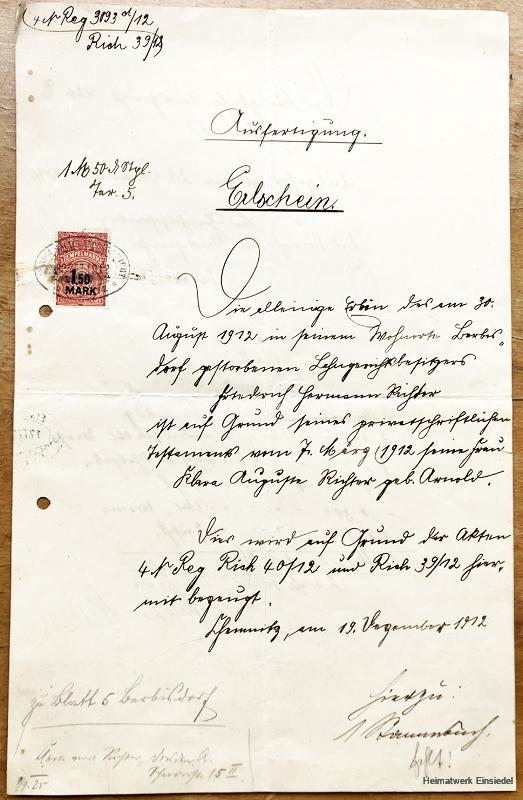 4 N Reg 3093/12
Rich 39/12
Ausfertigung.
1 M 50 ₰ Stpl.
Tar. 5.
Erbschein.
STEMPELMARKE
1,50
MARK
Die alleinige Erbin des am 30.
August 1912 in seinem Wohnorte Berbis-
dorf gestorbenen Lehngerichtsbesitzers
Friedrich Hermann Richter
ist auf Grund seines privatschriftlichen
Testaments vom 7. März 1912 seine Frau
Klara Auguste Richter geb. Arnold.
Dies wird auf Grund der Akten
4 N Reg Rich 40/12 und Rich 39/12 hier-
mit bezeugt.
Chemnitz, am 19. Dezember 1912
zu Blatt 5 Berbisdorf
hierzu:
1 Stammbuch.
Richter, Dresden A.
15 II
Heimatwerk Einsiedel